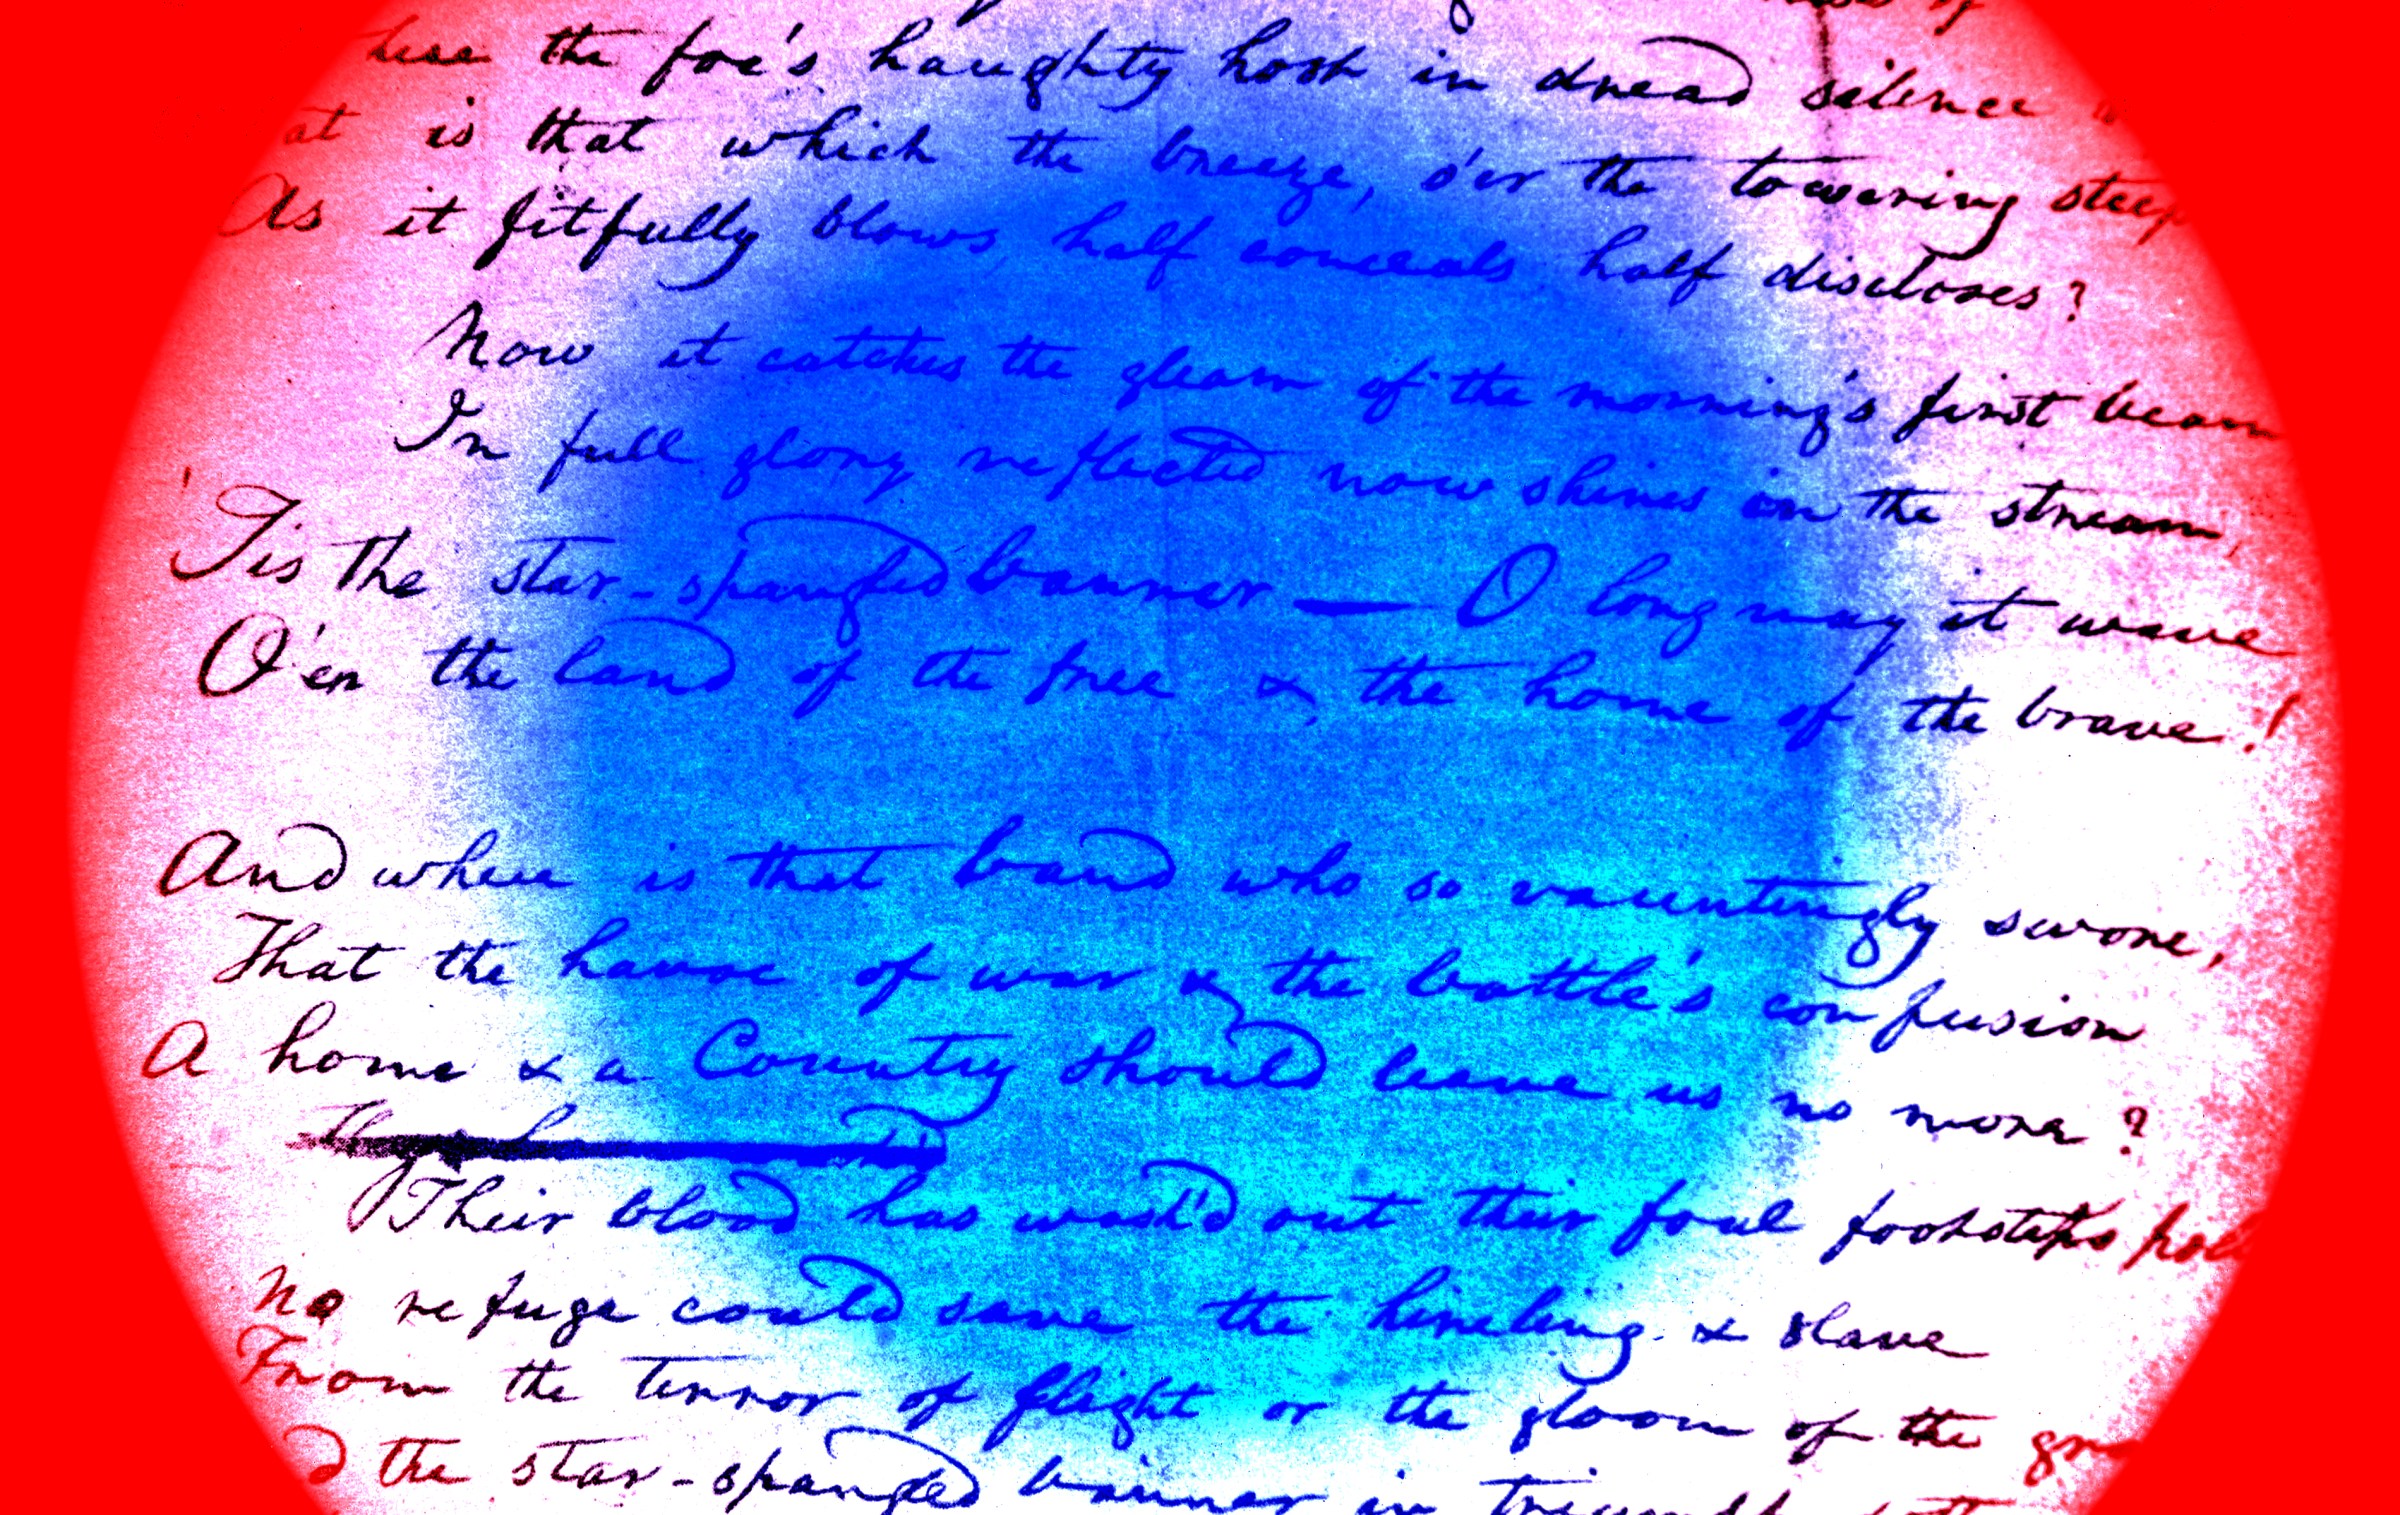 the foe's haughty host in dread silence
is that which the breeze, o'er the towering steep
As it fitfully blows, half conceals, half discloses?
Now it catches the gleam of the morning's first beam
In full glory reflected now shines in the stream,
'Tis the star-spangled banner — O long may it wave
O'er the land of the free & the home of the brave!
And where is that band who so vauntingly swore,
That the havoc of war & the battle's confusion
A home & a Country should leave us no more?
Their blood has wash'd out their foul footsteps
No refuge could save the hireling & slave
From the terror of flight or the gloom of the
the star-spangled banner in